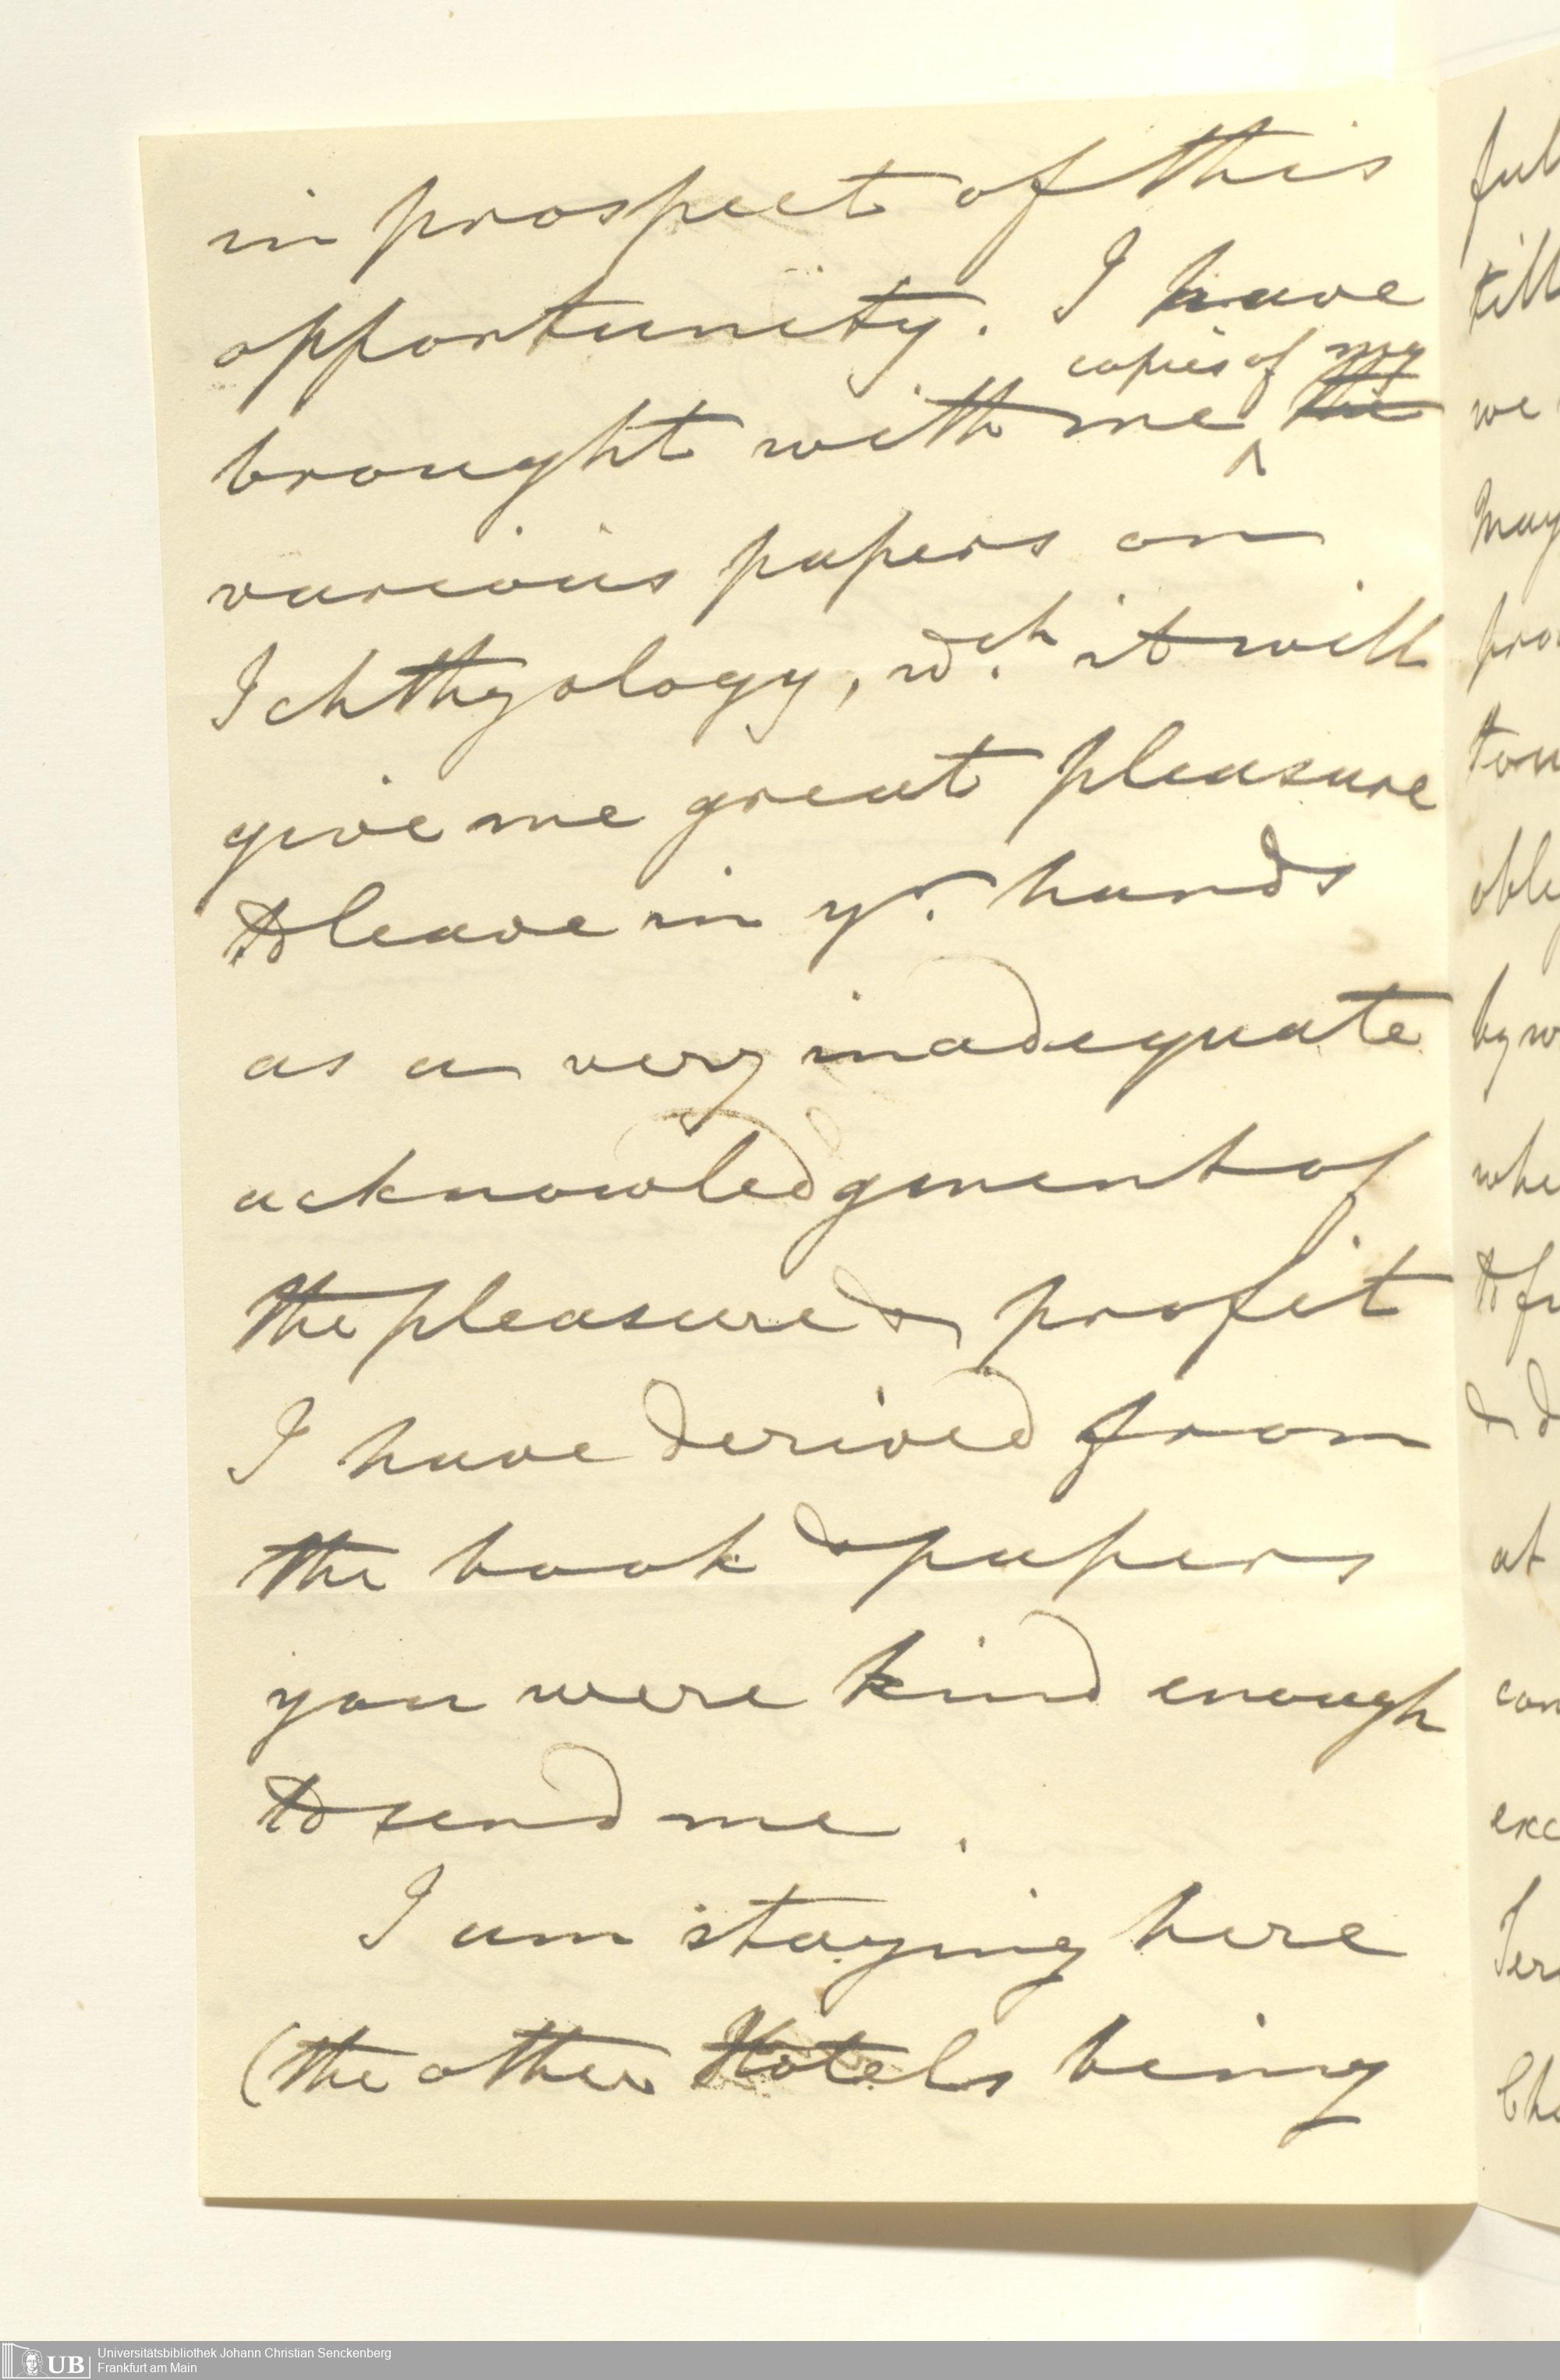 in prospect of this
opportunity. I have
copies of my
brought with me ^ the
various papers on
Ichthyology, wch. it will
give me great pleasure
to leave in yr. hands
as a very inadequate
acknowledgment of
the pleasure & profit
I have derived from
the book & papers
you were kind enough
to send me.
I am staying here
(the other Hotels being
till
we
May
at
Universitätsbibliothek Johann Christian Senckenberg
Frankfurt am Main
UB